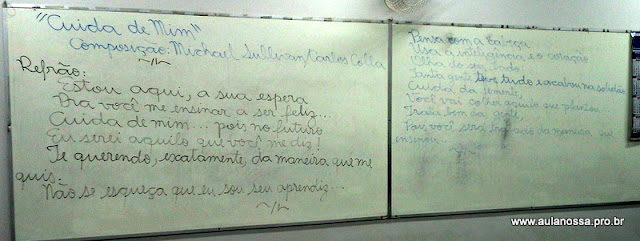 "Cuida de Mim"
Composição: Michael Sullivan/Carlos Colla
Refrão:
Estou aqui, a sua espera
Pra você me ensinar a ser feliz...
Cuida de mim... pois no futuro
Eu serei aquilo que você me diz!
Te querendo, exatamente, da maneira que me
quis.
Não se esqueça que eu sou seu aprendiz...
Pensa com a cabeça
Usa a inteligência e o coração
Olha do seu lado
Tanta gente teve tudo e acabou na solidão
Cuida da semente,
Você vai colher aquilo que plantou
Trata bem da gente,
Pois você será tratado da maneira que
ensinou...
www.aulanossa.pro.br